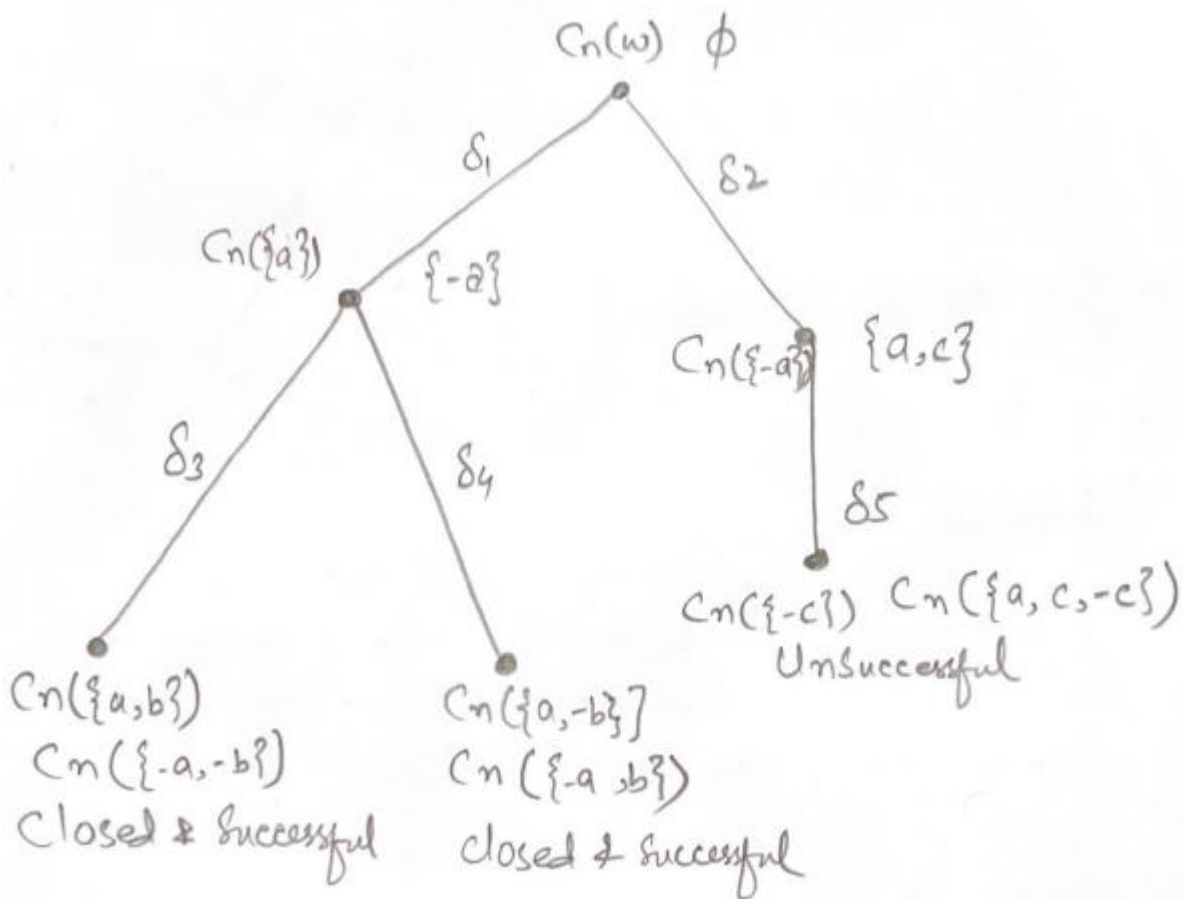 Cn(w) ϕ
δ1
δ2
Cn({a})
{-a}
Cn({-a})
{a,c}
δ3
δ4
δ5
Cn({-c}) Cn({a, c, -c})
Unsuccessful
Cn({a,b})
Cn({-a,-b})
Closed & Successful
Cn({a,-b}]
Cn ({-a ,b})
closed & Successful